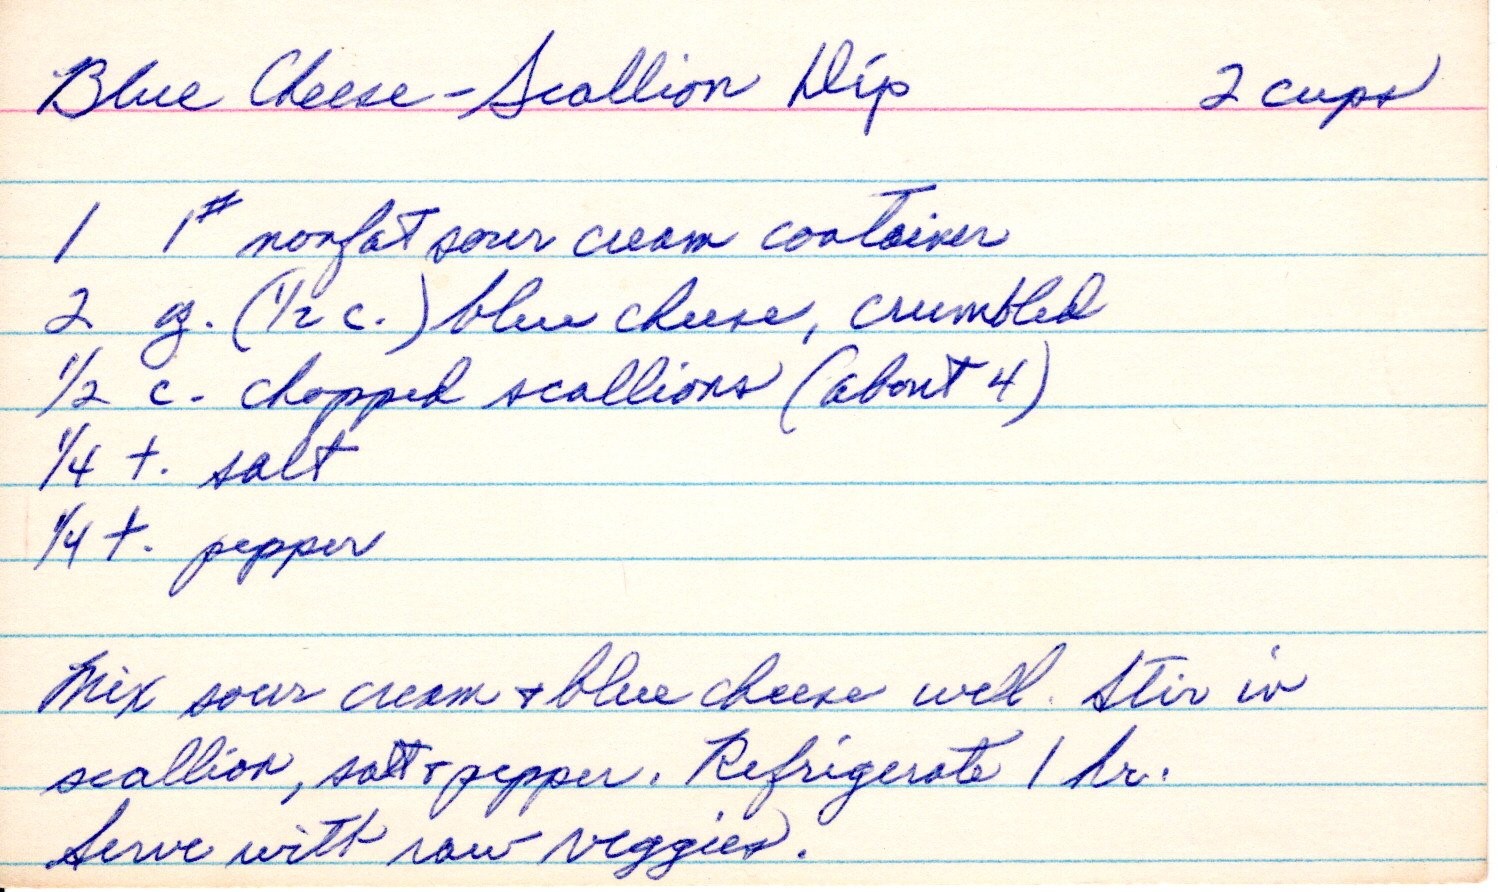 Blue Cheese-Scallion Dip 2 cups
1 1# nonfat sour cream container
2 oz. (1/2 c.) blue cheese, crumbled
1/2 c. chopped scallions (about 4)
1/4 t. salt
1/4 t. pepper
Mix sour cream + blue cheese well. Stir in
scallion, salt + pepper. Refrigerate 1 hr.
Serve with raw veggies.